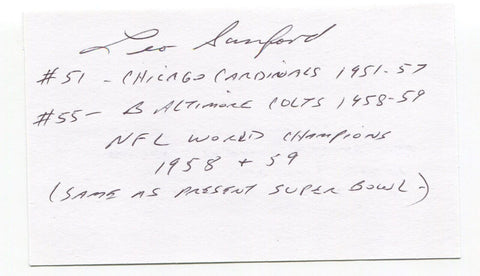 Leo Sanford
#51 - CHICAGO CARDINALS 1951-57
#55- BALTIMORE COLTS 1958-59
NFL WORLD CHAMPIONS
1958 + 59
(SAME AS PRESENT SUPER BOWL-)